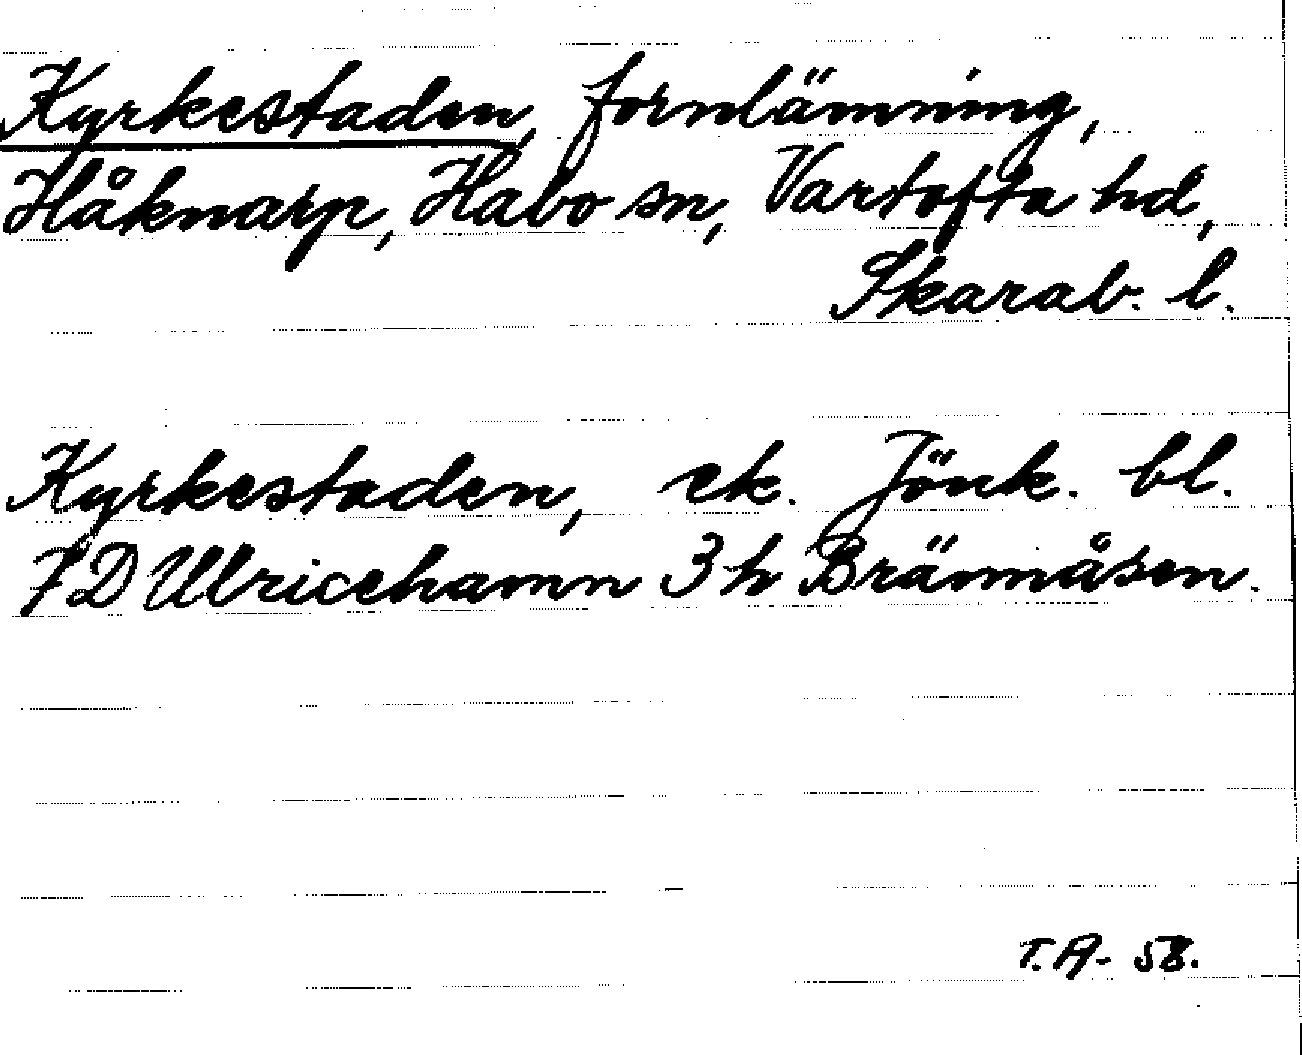 Kyrkestaden, fornlämning,
Håknarp, Habo sn, Vartofta hd,
Skarab. l.
Kyrkestaden, ek. Jönk. bl.
7D Ulricehamn 3h Brännåsen.
T.A- 58.